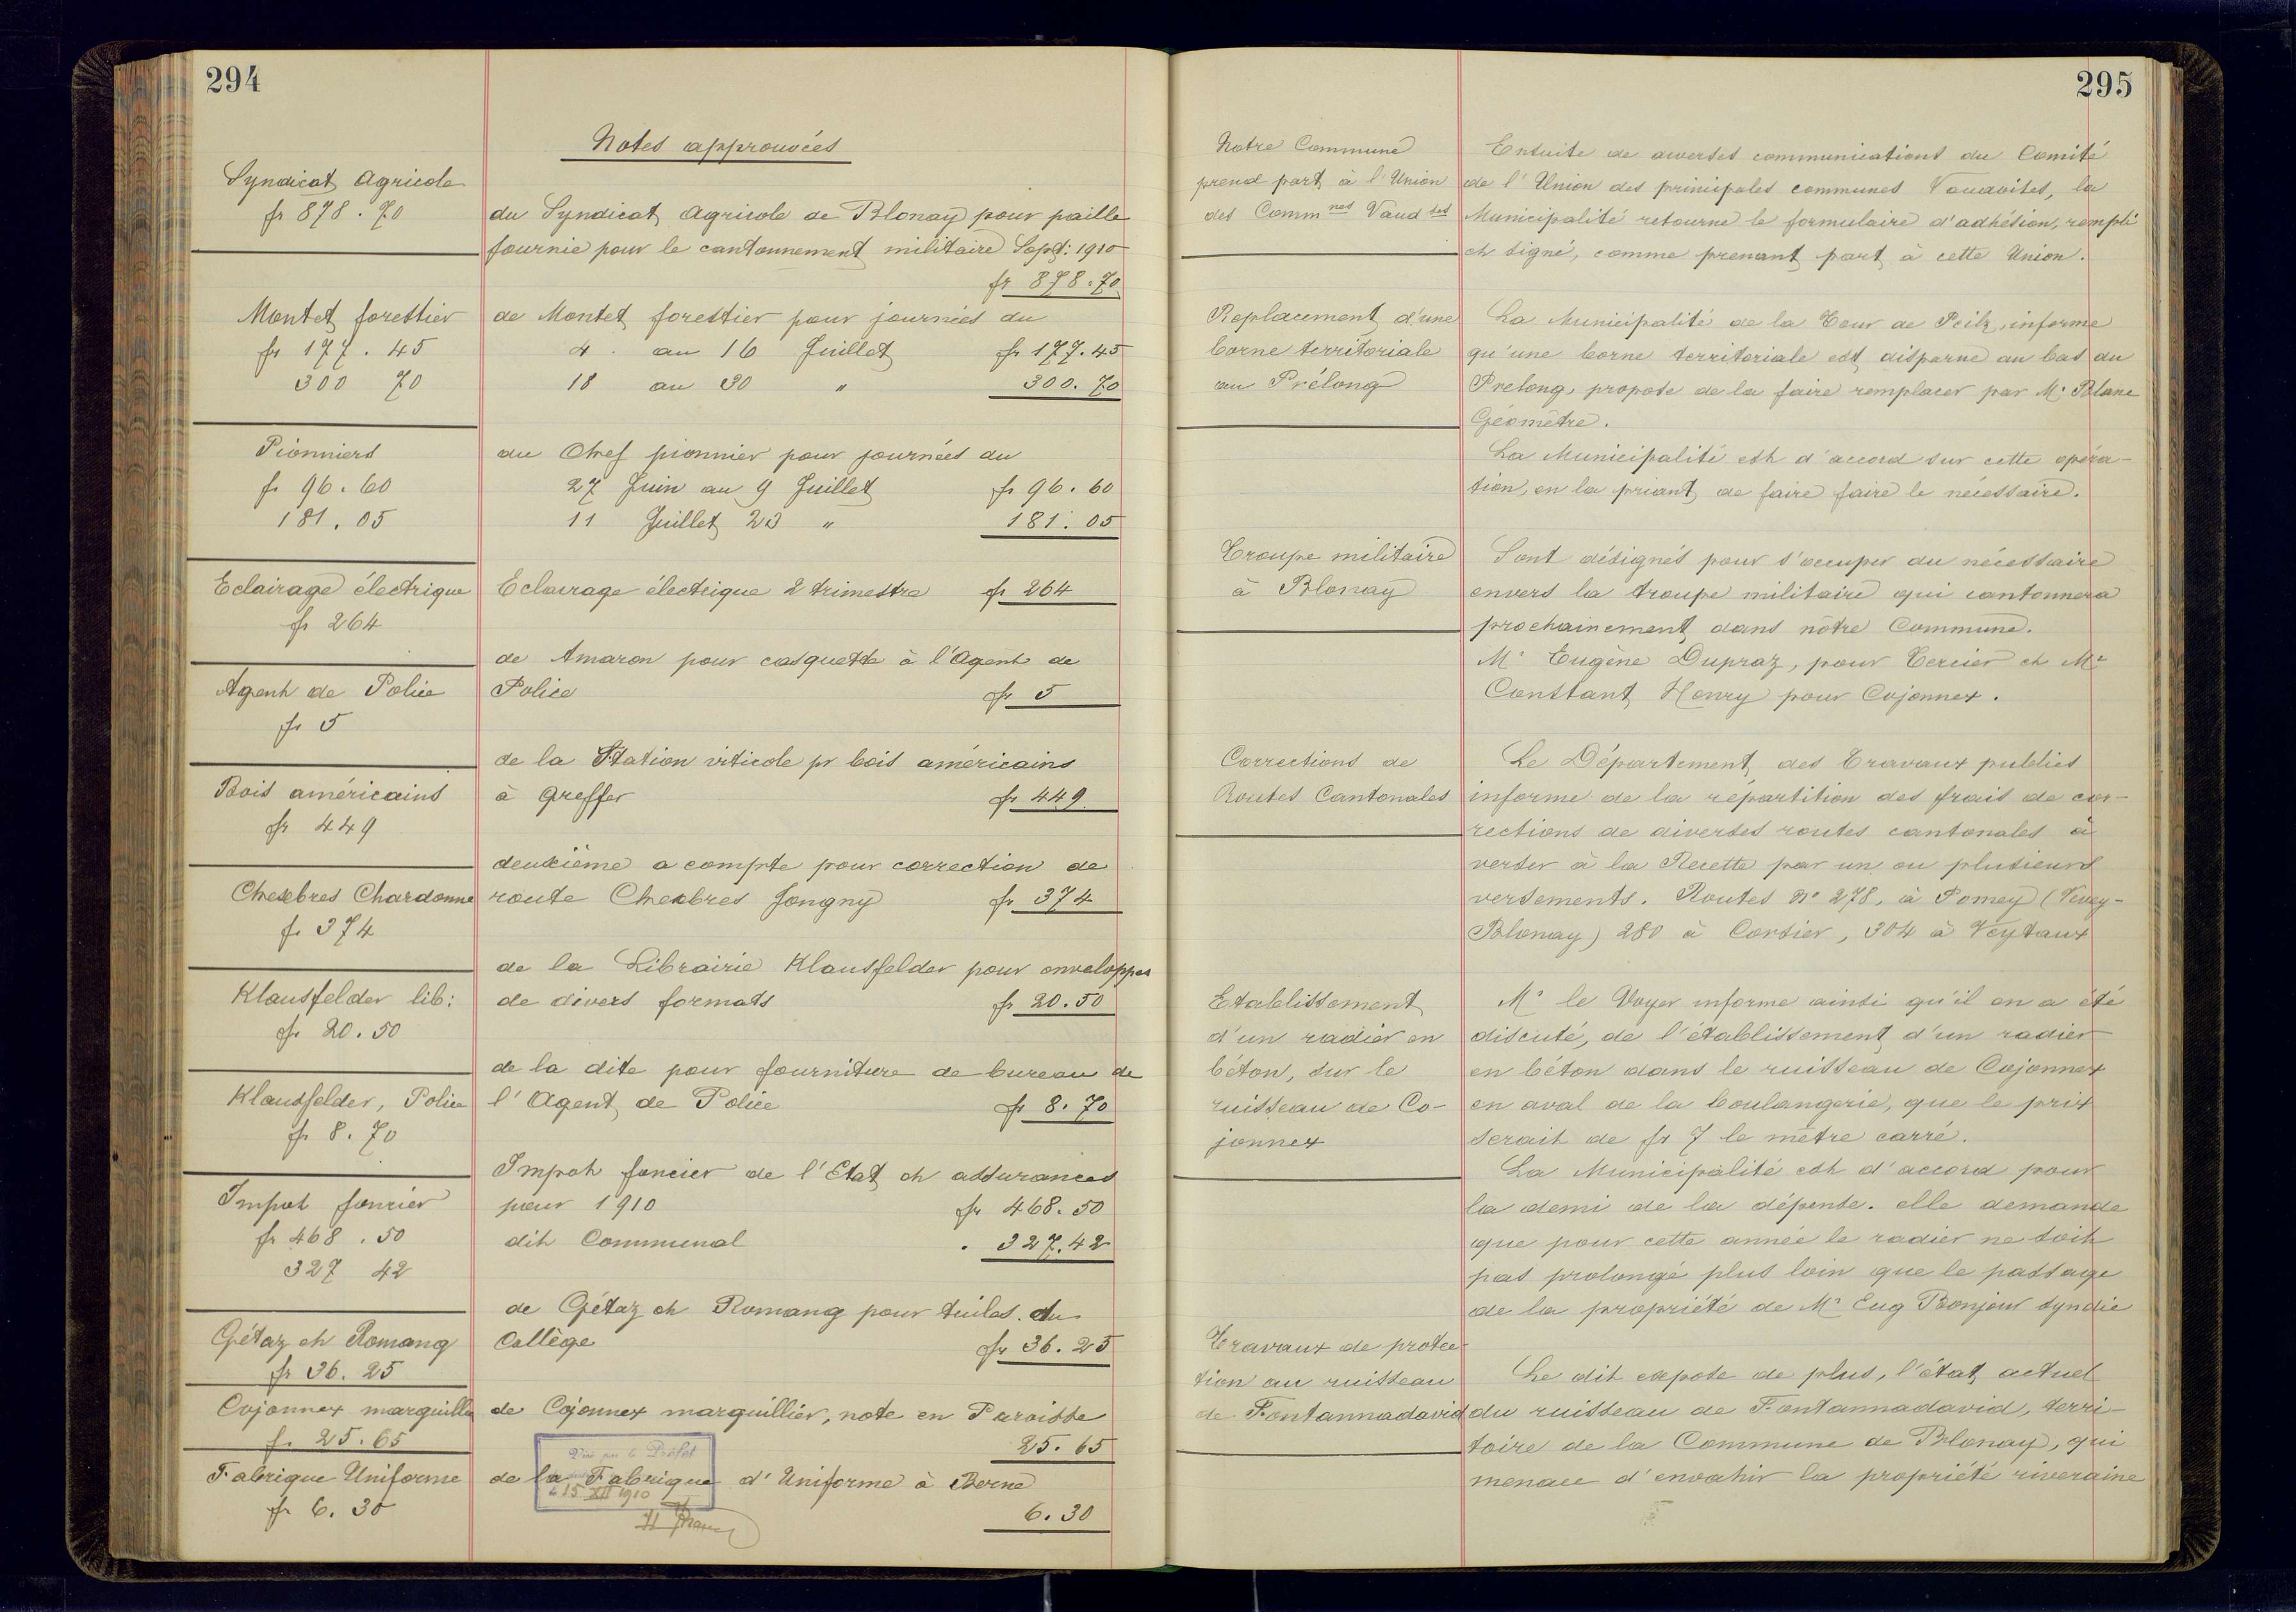 294
Notes approuvées
Syndicat Agricole
fr 878.70
du Syndicat Agricole de Blonay pour paille
fournie pour le cantonnement militaire Sept: 1910
fr 878.70
Montet forestier
fr 177.45
300 70
de Montet forestier pour journées du
4 au 16 Juillet fr 177.45
18 au 30 " 300.70
Pionniers
fr 96.60
181.05
au Chef pionnier pour journées du
27 Juin au 9 Juillet fr 96.60
11 Juillet 23 " 181.05
Eclairage électrique
fr 264
Eclairage électrique 2 trimestre fr 264
Agent de Police
fr 5
de Amaron pour casquette à l'Agent de
Police fr 5
Bois américains
fr 449
de la Station viticole pr bois américains
à greffer fr 449
Chexbres Chardonne
fr 374
deuxième a compte pour correction de
route Chexbres Jongny fr 374
Klausfelder lib:
fr 20.50
de la Librairie Klausfelder pour enveloppes
de divers formats fr 20.50
Klausfelder, Police
fr 8.70
de la dite pour fourniture de bureau de
l'Agent de Police fr 8.70
Impot foncier
fr 468.50
327 42
Impot foncier de l'Etat et assurances
pour 1910 fr 468.50
dit Communal . 327.42
Gétaz et Romang
fr 36.25
de Gétaz et Romang pour tuiles du
Collège fr 36.25
Cojonnex marguillier
fr 25.65
de Cojonnex marguillier, note en Paroisse
25.65
Fabrique Uniforme
fr 6.30
de la Fabrique d'Uniforme à Berne
6.30
Vu par le Préfet
le 15 XII 1910
295
Notre Commune
prend part à l'Union
des Commnes Vaudses
Ensuite de diverses communications du Comité
de l'Union des principales communes Vaudoises, la
Municipalité retourne le formulaire d'adhésion, rempli
et signé, comme prenant part à cette Union.
Replacement d'une
borne territoriale
au Prélong
La Municipalité de la Tour de Peilz, informe
qu'une borne territoriale est disparue au bas du
Prelong, propose de la faire remplacer par Mr Blanc
Géomètre.
La Municipalité est d'accord sur cette opéra-
tion, en la priant de faire faire le nécessaire.
Troupe militaire
à Blonay
Sont désignés pour s'occuper du nécessaire
envers la troupe militaire qui cantonnera
prochainement dans nôtre Commune.
Mr Eugène Dupraz, pour Tercier et Mr
Constant Henry pour Cojonnex.
Corrections de
Routes Cantonales
Le Département des Travaux publics
informe de la répartition des frais de cor-
rections de diverses routes cantonales à
verser à la Recette par un ou plusieurs
versements. Routes No 278, à Pomey (Vevey-
Blonay) 280 à Corsier, 304 à Veytaux
Etablissement
d'un radier en
béton, sur le
ruisseau de Co-
jonnex
Mr le Voyer informe ainsi qu'il en a été
discuté, de l'établissement d'un radier
en béton dans le ruisseau de Cojonnex
en aval de la boulangerie, que le prix
serait de fr 7 le mètre carré.
La Municipalité est d'accord pour
la demi de la dépense. elle demande
que pour cette année le radier ne soit
pas prolongé plus loin que le passage
de la propriété de Mr Eug Bonjour syndic
Travaux de protec-
tion au ruisseau
de Fontannadavid
Le dit expose de plus, l'état actuel
du ruisseau de Fontannadavid, terri-
toire de la Commune de Blonay, qui
menace d'envahir la propriété riveraine